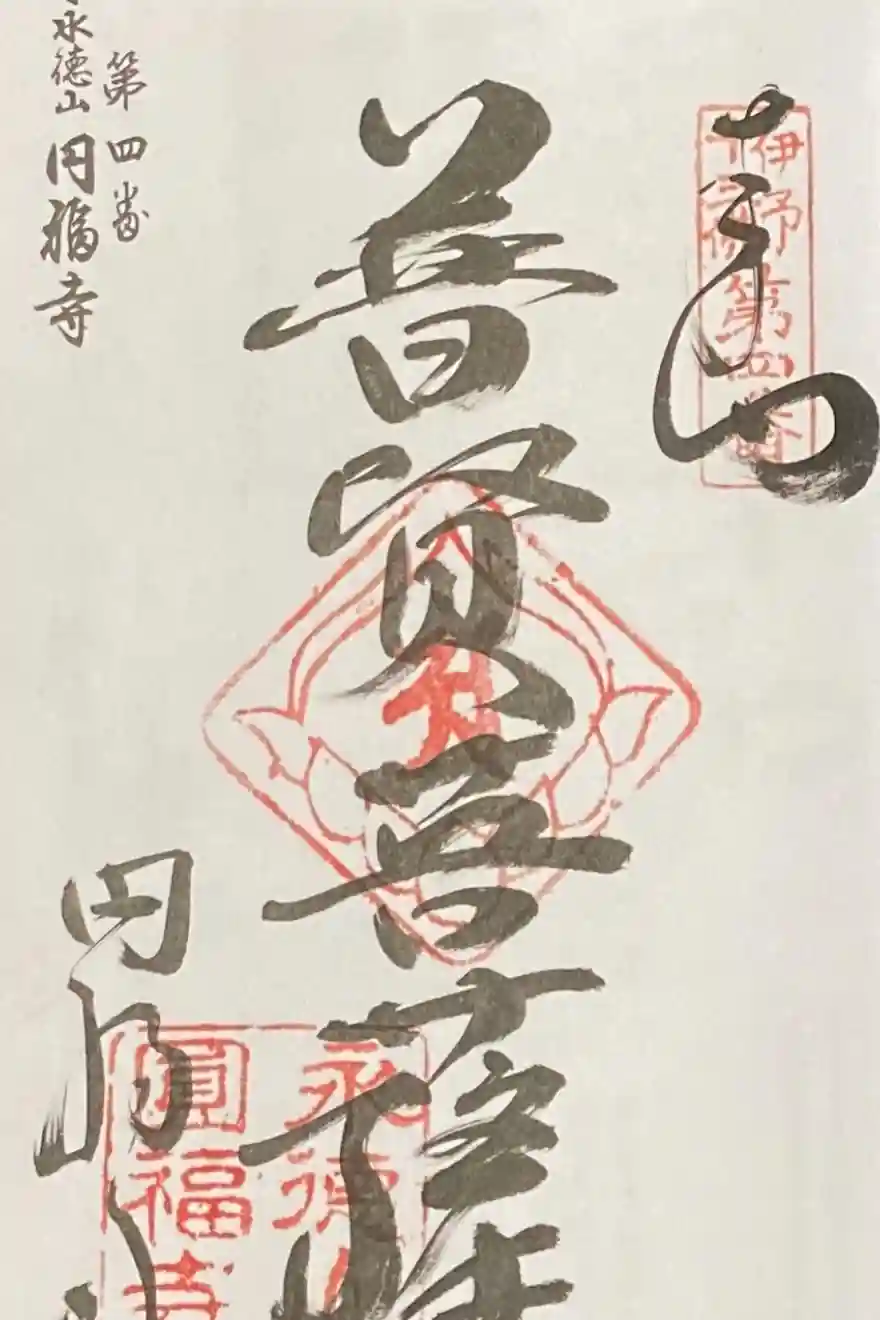 奉拝
伊予
十三佛
第四番
普賢菩薩
永德
圓福寺
円福寺
第四番
永徳山 円福寺